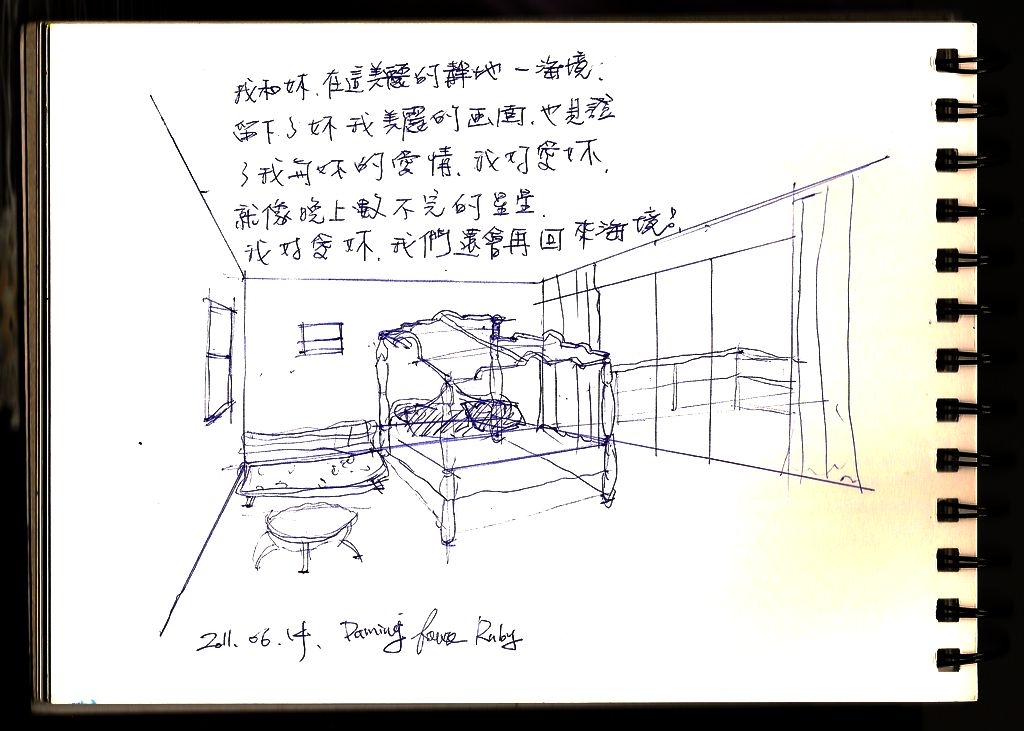 我和妳、在這美麗的靜地一海境:
留下了妳我美麗的画面、也見證
了我與妳的愛情、我好愛妳、
就像晚上數不完的星星、
我好愛妳、我們還會再回來海境!
2011.06.14、 Daming Ruby